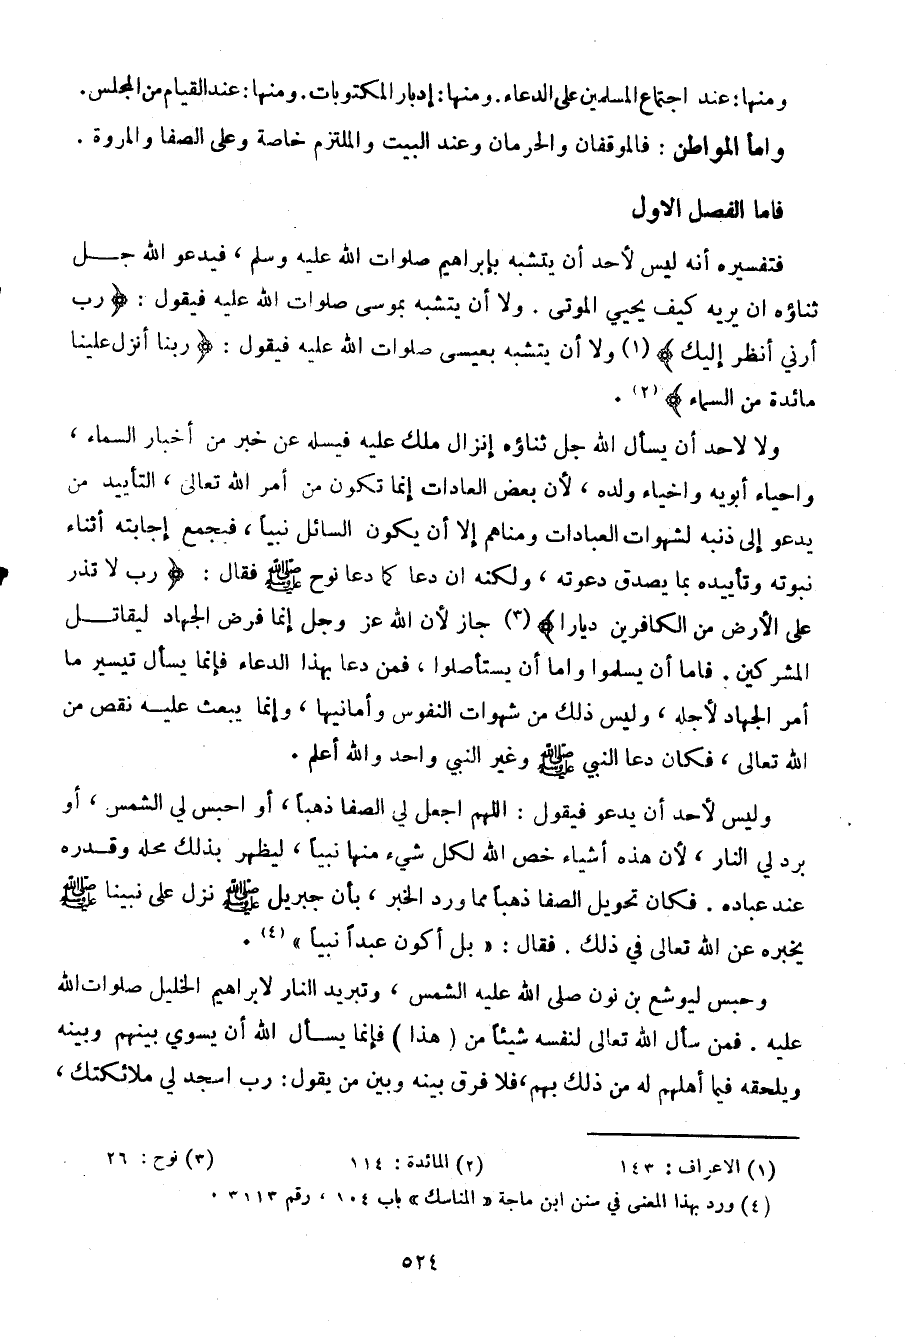 ومنها: عند اجتماع المسلمين على الدعاء. ومنها: إدبار المكتوبات. ومنها: عند القيام من المجلس.
واما المواطن : فالموقفان والحرمان وعند البيت والملتزم خاصة وعلى الصفا والمروة .
فاما الفصل الاول
فتفسيره أنه ليس لأحد أن يتشبه بإبراهيم صلوات الله عليه وسلم ، فيدعو الله جل
ثناؤه ان يريه كيف يحيي الموتى . ولا أن يتشبه بموسى صلوات الله عليه فيقول : ﴿ رب
أرني أنظر إليك ﴾ (١) ولا أن يتشبه بعيسى صلوات الله عليه فيقول : ﴿ ربنا أنزل علينا
مائدة من السماء ﴾ (٢) .
ولا لاحد أن يسأل الله جل ثناؤه إنزال ملك عليه فيسله عن خبر من أخبار السماء ،
واحياء أبويه واخياء ولده ، لأن بعض العادات إنما تكون من أمر الله تعالى ، التأييد من
يدعو إلى ذنبه لشهوات العبادات ومناهم إلا أن يكون السائل نبياً ، فيجمع إجابته أثناء
نبوته وتأييده بما يصدق دعوته ، ولكنه ان دعا كما دعا نوح ﷺ فقال : ﴿ رب لا تذر
على الأرض من الكافرين ديارا ﴾ (٣) جاز لأن الله عز وجل إنما فرض الجهاد ليقاتل
المشركين . فاما أن يسلموا واما أن يستأصلوا ، فمن دعا بهذا الدعاء فإنما يسأل تيسير ما
أمر الجهاد لأجله ، وليس ذلك من شهوات النفوس وأمانيها ، وإنما يبعث عليه نقص من
الله تعالى ، فكان دعا النبي ﷺ وغير النبي واحد والله أعلم .
وليس لأحد أن يدعو فيقول : اللهم اجعل لي الصفا ذهباً ، أو احبس لي الشمس ، أو
برد لي النار ، لأن هذه أشياء خص الله لكل شيء منها نبياً ، ليظهر بذلك محله وقدره
عند عباده . فكان تحويل الصفا ذهباً مما ورد الخبر ، بأن جبريل ﷺ نزل على نبينا ﷺ
يخبره عن الله تعالى في ذلك . فقال : « بل أكون عبداً نبياً » (٤) .
وحبس ليوشع بن نون صلى الله عليه الشمس ، وتبريد النار لابراهيم الخليل صلوات الله
عليه . فمن سأل الله تعالى لنفسه شيئاً من ( هذا ) فإنما يسأل الله أن يسوي بينهم وبينه
ويلحقه فيما أهلهم له من ذلك بهم، فلا فرق بينه وبين من يقول: رب اسجد لي ملائكتك ،
(١) الاعراف : ١٤٣ (٢) المائدة : ١١٤ (٣) نوح : ٢٦
(٤) ورد بهذا المعنى في سنن ابن ماجة « المناسك » باب ١٠٤ ، رقم ٣١١٣ .
٥٢٤